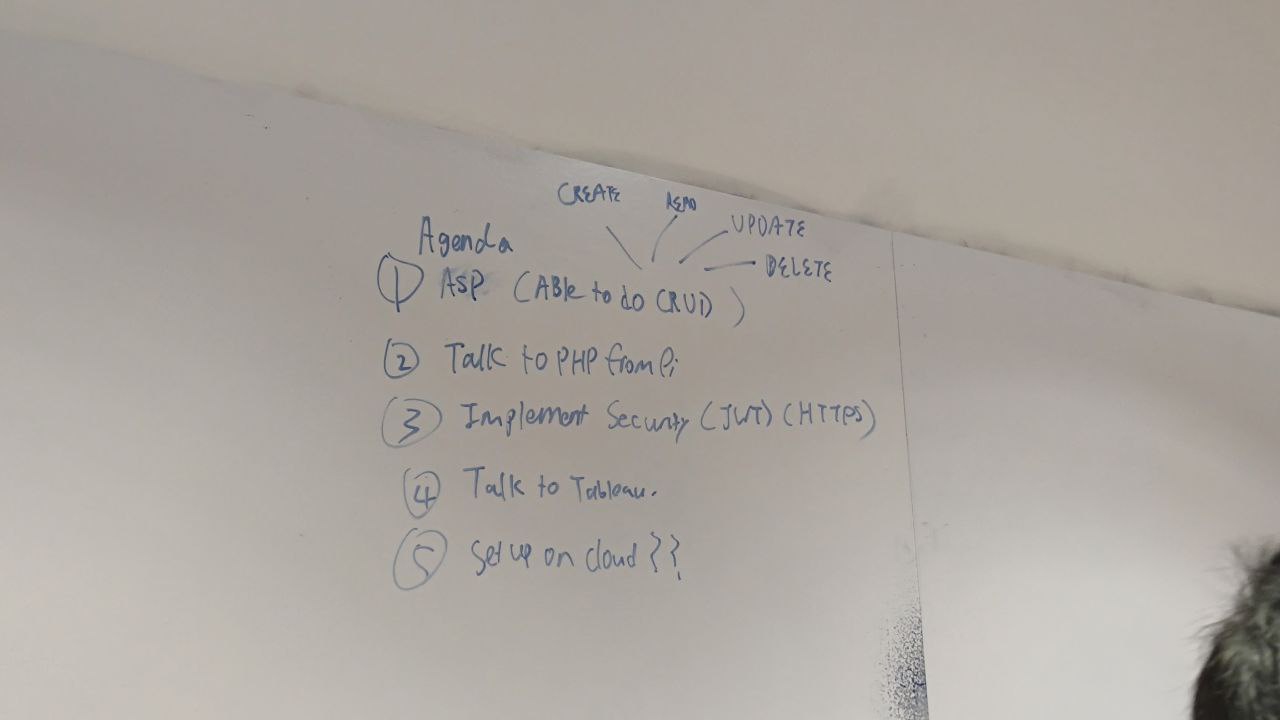 CREATE
READ
UPDATE
DELETE
Agenda
1 ASP (ABle to do CRUD)
2 Talk to PHP from Pi
3 Implement Security (JWT) (HTTPS)
4 Talk to Tableau.
5 Set up on cloud ??